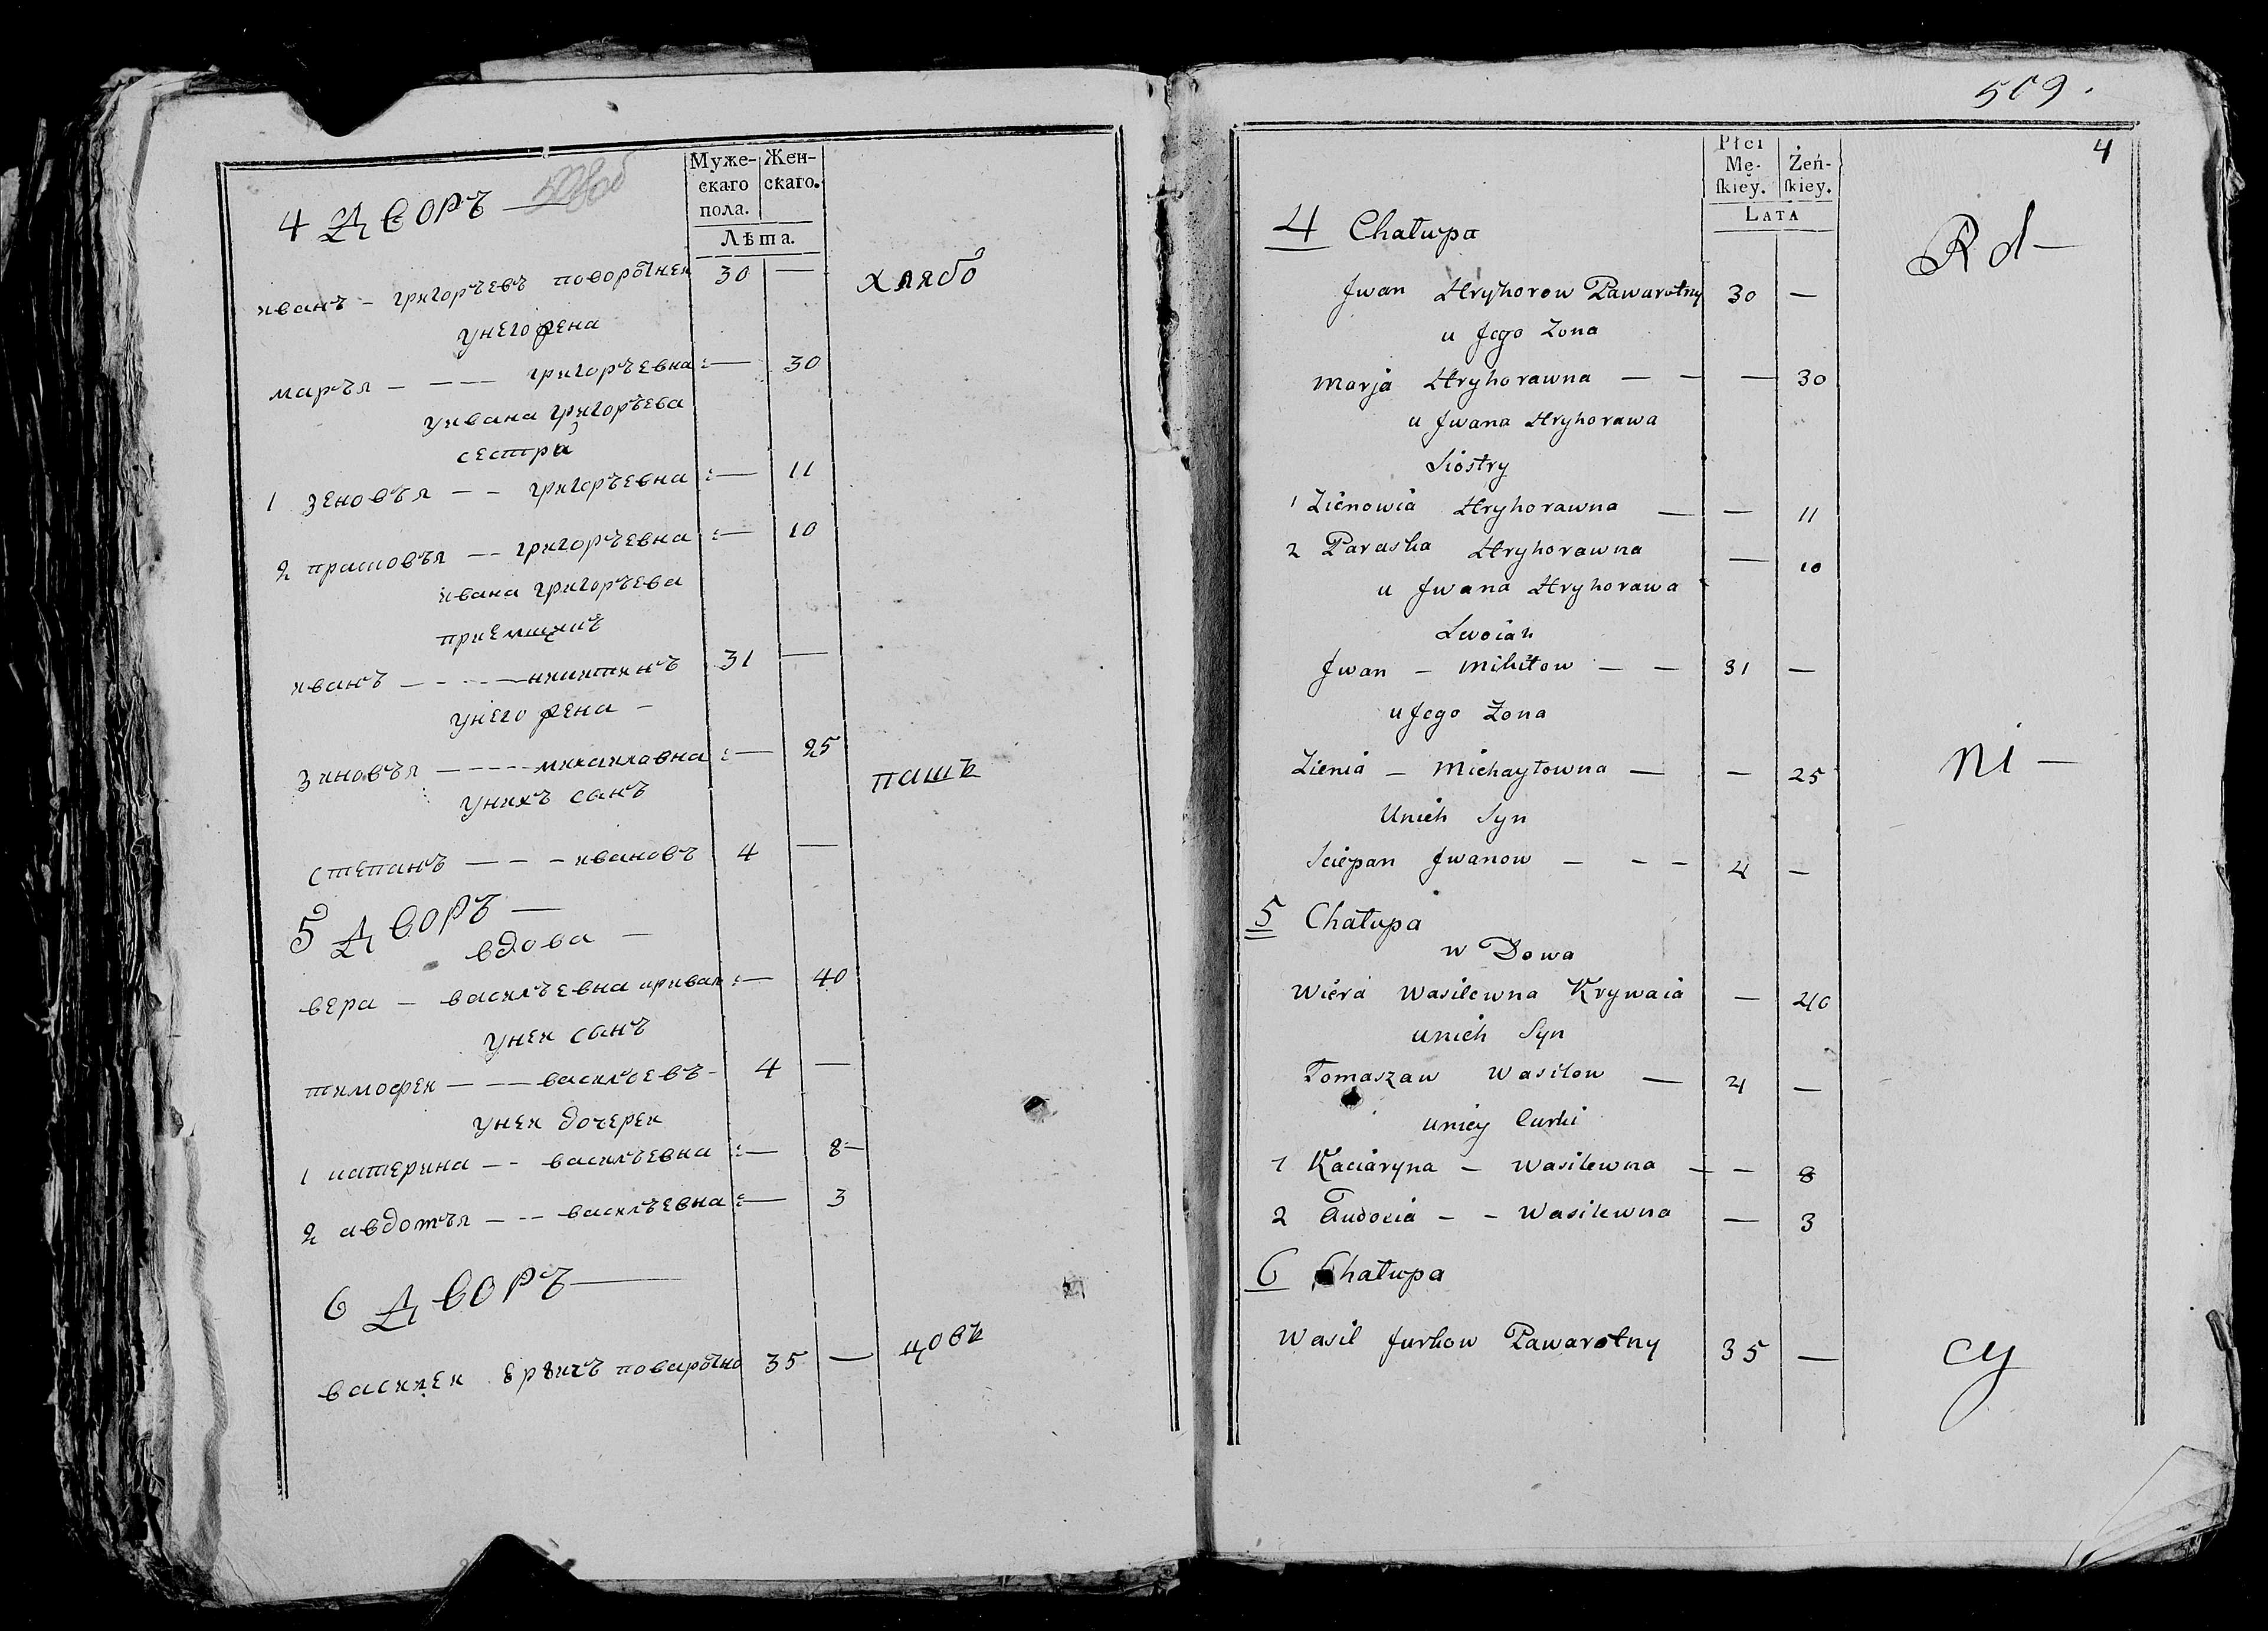 4 Дворъ —
Муже-
скаго
пола.
Жен-
скаго.
Лѣта.
иванъ — григорьевъ поворотнеи 30 —
унего жена
марья — — — григорьевна :— 30
уивана григорьева
сестра
1 зеновья — — григорьевна :— 11
2 прасковья — — григорьевна :— 10
ивана григорьева
иванъ — — — — никитинъ 31 —
унего жена —
зиновья — — — — михаиловна :— 25
унихъ санъ
степанъ — — — ивановъ 4 —
5 Дворъ —
вдова —
вера — васильевна кривая :— 40
унеи санъ
тимофеи — — — васильевъ - 4 —
унеи дочереи
1 катерина — — васильевна :— 8 —
2 авдотья — — — васильевна :— 3
6 Дворъ —
василеи поваротно 35 —
хлябо
пашк
цовк
509.
4
Płci
Mę-
skiey.
Żeń-
skiey.
LATA
4 Chałupa
Jwan Hryhorow Pawarotny 30 —
u Jego Zona
Marja Hryhorawna — — — 30
u Jwana Hryhorawa
Siostry
1 Zienowia Hryhorawna — — 11
2 Paraska Hryhorawna — 10
u Jwana Hryhorawa
Swoiak
Jwan — Mikitow — — 31 —
u Jego Zona
Zienia — Michayłowna — — 25
Unich Syn
Sciepan Jwanow — — — 4 —
5 Chałupa
w Dowa
Wiera Wasilewna Krywaia — 40
unich Syn
Tomaszaw Wasilow — 4 —
uniey Curki
1 Kaciaryna — Wasilewna — — 8
2 Audocia — — Wasilewna — 3
6 Chałupa
Wasil Jurkow Pawarotny 35 —
Rd —
ni —
cy